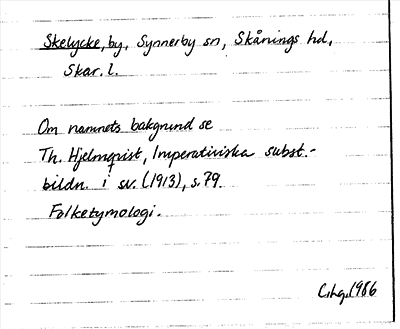 Skelycke, by, Synnerby sn, Skånings hd,
Skar. l.
Om namnets bakgrund se
Th. Hjelmqvist, Imperativiska subst.-
bildn. i sv. (1913), s. 79.
Folketymologi.
1986